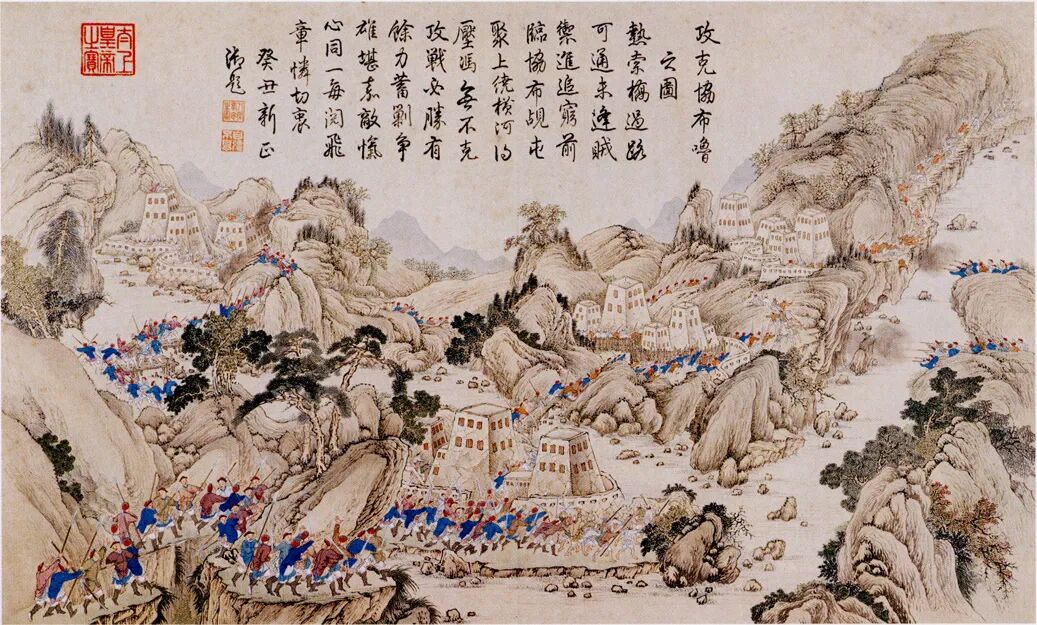 攻克協布嚕
之圖
熱索橋過路
可通未逢賊
禦進追窮前
臨協布覘屯
聚上繞橫河乃
壓馮無不克
攻戰必勝有
餘力蓄剿爭
雄堪嘉敵愾
心同一每閱飛
章憐切衷
癸丑新正
御題
太上
皇帝
之寶